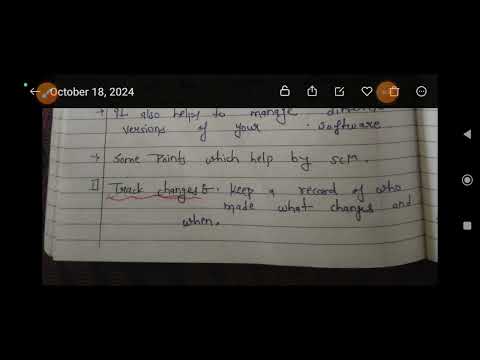 October 18, 2024
→ It also helps to manage different
versions of your software
→ Some Points which help by SCM.
1] Track changes :- Keep a record of who
made what changes and
when.